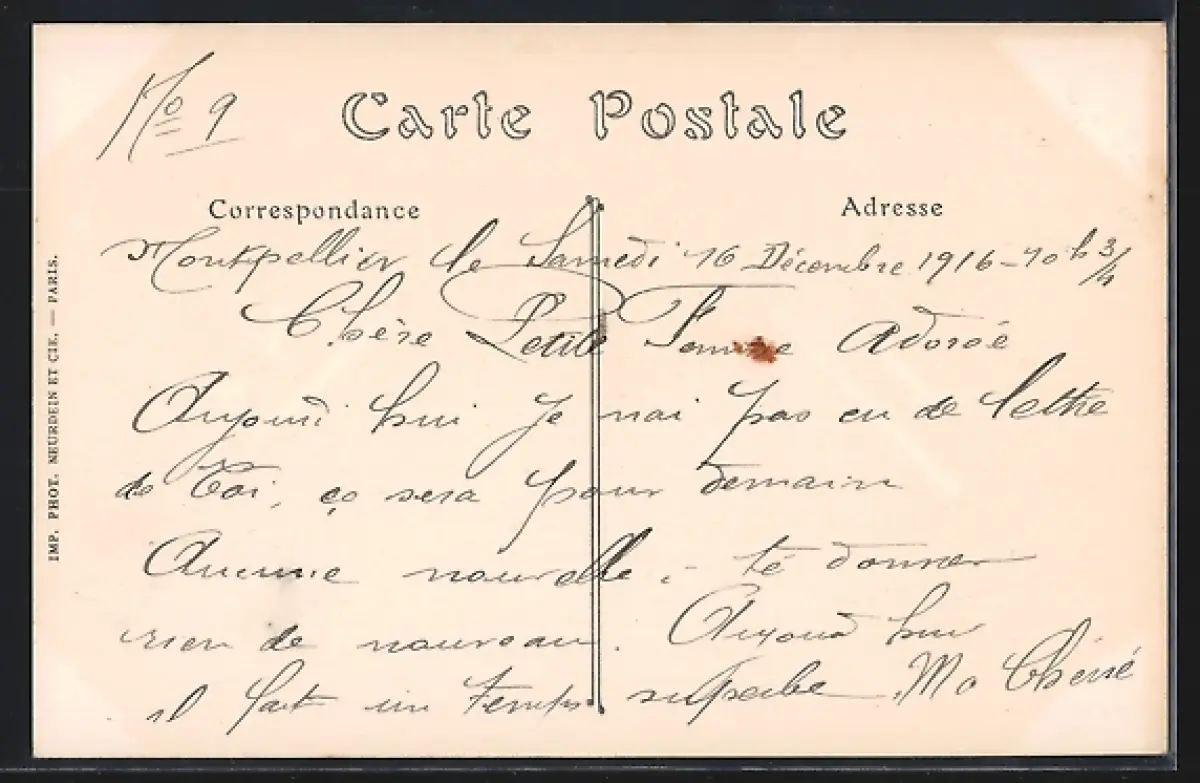 No 9
Carte Postale
Correspondance
Adresse
Montpellier le Samedi 16 Décembre 1916 - 10 h 3/4
Chère Petite Femme Adoré
Aujourdi hui Je nai pas eu de lettre
de Toi, ça sera pour demain
Aucune nouvelle à té donner
rien de nouveau. Aujourd hui
il fait un temps superbe Ma Chérié
IMP. PHOT. NEURDEIN ET CIE. — PARIS.